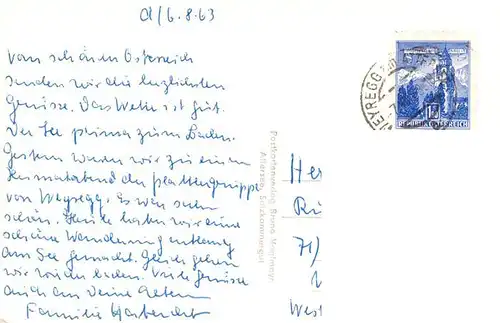 A/6.8.63
Vom schönen Österreich
senden wir die herzlichsten
Grüsse. Das Wetter ist gut.
Der See prima zum Baden.
Gestern waren wir zu einem
Heimatabend der plattlergruppe
von Weyregg. Es war sehr
schön. Heute haben wir eine
schöne Wanderung entlang
am See gemacht. Gleich gehen
wir wieder baden. Viele Grüsse
auch an Deine Eltern
Familie
WEYREGG
REPUBLIK ÖSTERREICH
Postkartenverlag Bruno
Attersee, Salzkammergut
71)
West